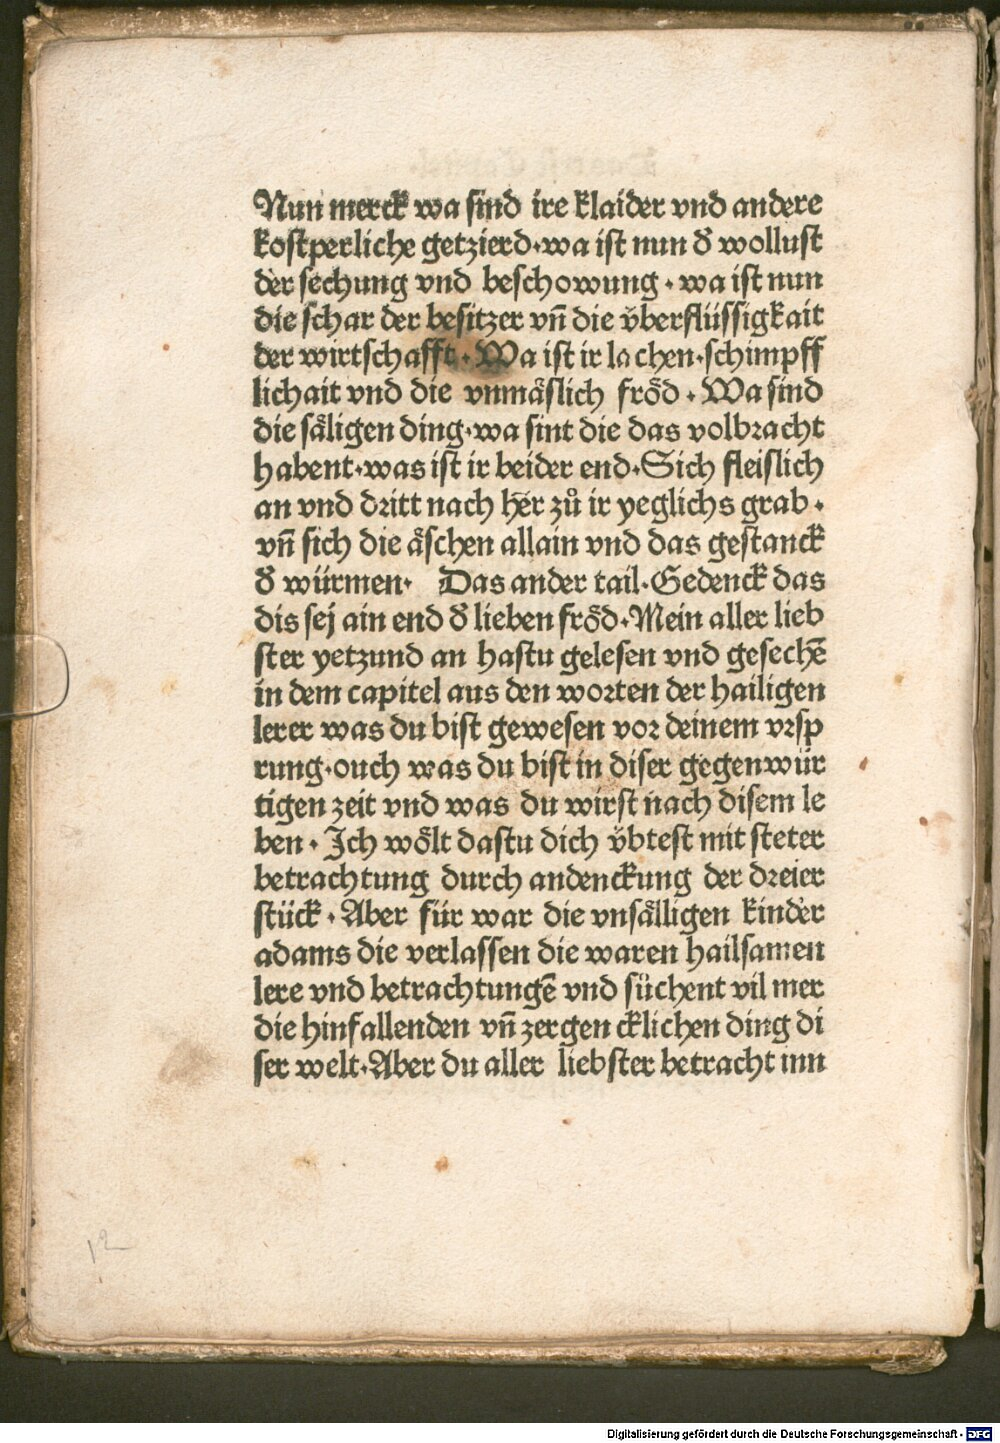 Nun merck wa sind ire klaider vnd andere
kostperliche getzierd·wa ist nun đ wollust
der sechung vnd beschowung · wa ist nun
die schar der besitzer vn̄ die v̈berflüssigkait
der wirtschafft · Wa ist ir lachen·schimpff
lichait vnd die vnmäslich fröd · Wa sind
die säligen ding·wa sint die das volbracht
habent·was ist ir beider end·Sich fleislich
an vnd dritt nach her zů ir yeglichs grab ·
vn̄ sich die äschen allain vnd das gestanck
đ würmen· Das ander tail·Gedenck das
dis sej ain end đ lieben fröd·Mein aller lieb
ster yetzund an hastu gelesen vnd gesechē
in dem capitel aus den worten der hailigen
lerer was du bist gewesen vor deinem vrsp
rung·ouch was du bist in diser gegenwür
tigen zeit vnd was du wirst nach disem le
ben · Ich wölt dastu dich v̈btest mit steter
betrachtung durch andenckung der dreier
stück · Aber für war die vnsälligen kinder
adams die verlassen die waren hailsamen
lere vnd betrachtungē vnd süchent vil mer
die hinfallenden vn̄ zergencklichen ding di
ser welt·Aber du aller liebster betracht inn
12
Digitalisierung gefördert durch die Deutsche Forschungsgemeinschaft - DFG